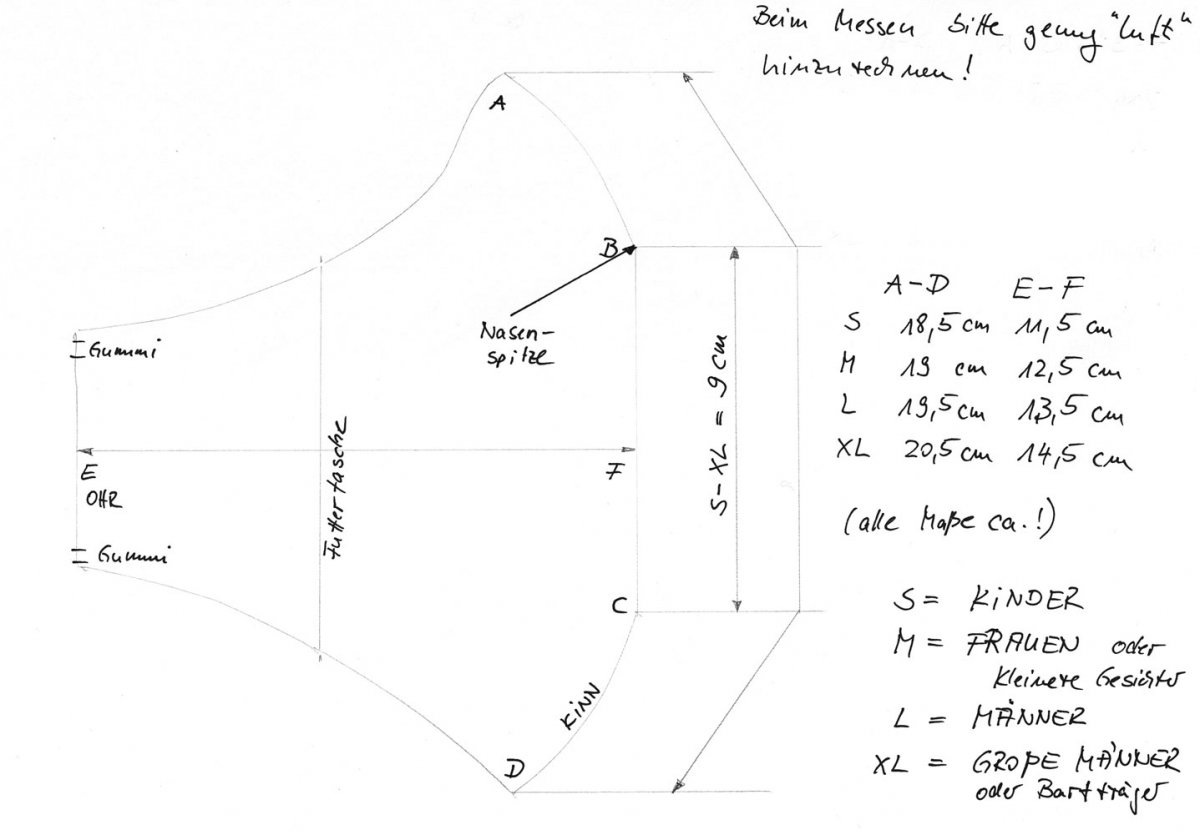 Beim Messen bitte genug "Luft"
hinzurechnen!
A
B
Nasen-
spitze
Gummi
E
OHR
F
Futtertasche
Gummi
S-XL = 9 cm
C
KINN
D
A-D E-F
S 18,5 cm 11,5 cm
M 19 cm 12,5 cm
L 19,5 cm 13,5 cm
XL 20,5 cm 14,5 cm
(alle Maße ca.!)
S = KINDER
M = FRAUEN oder
kleinere Gesichter
L = MÄNNER
XL = GROßE MÄNNER
oder Bartträger